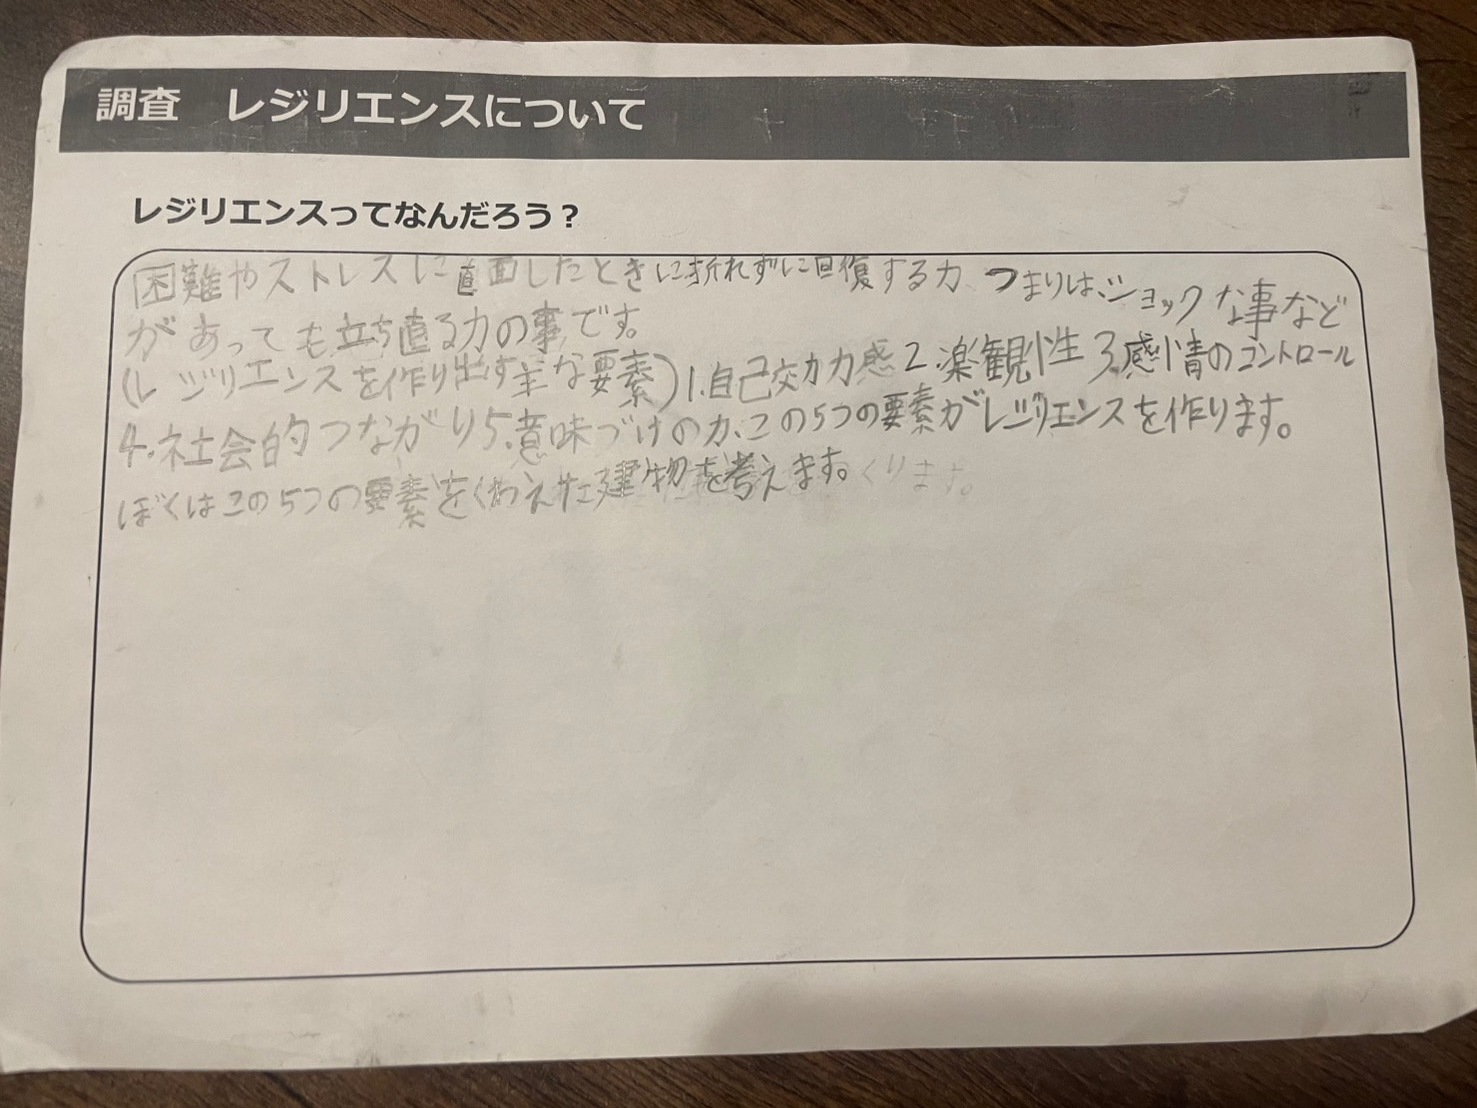 調査　レジリエンスについて
レジリエンスってなんだろう？
困難やストレスに直面したときに折れずに回復する力、つまりは、ショックな事など
があっても立ち直る力の事です。
(レジリエンスを作り出す主な要素)1.自己効力感2.楽観性3.感情のコントロール
4.社会的つながり5.意味づけの力、この5つの要素がレジリエンスを作ります。
ぼくはこの5つの要素をくわえた建物を考えます。